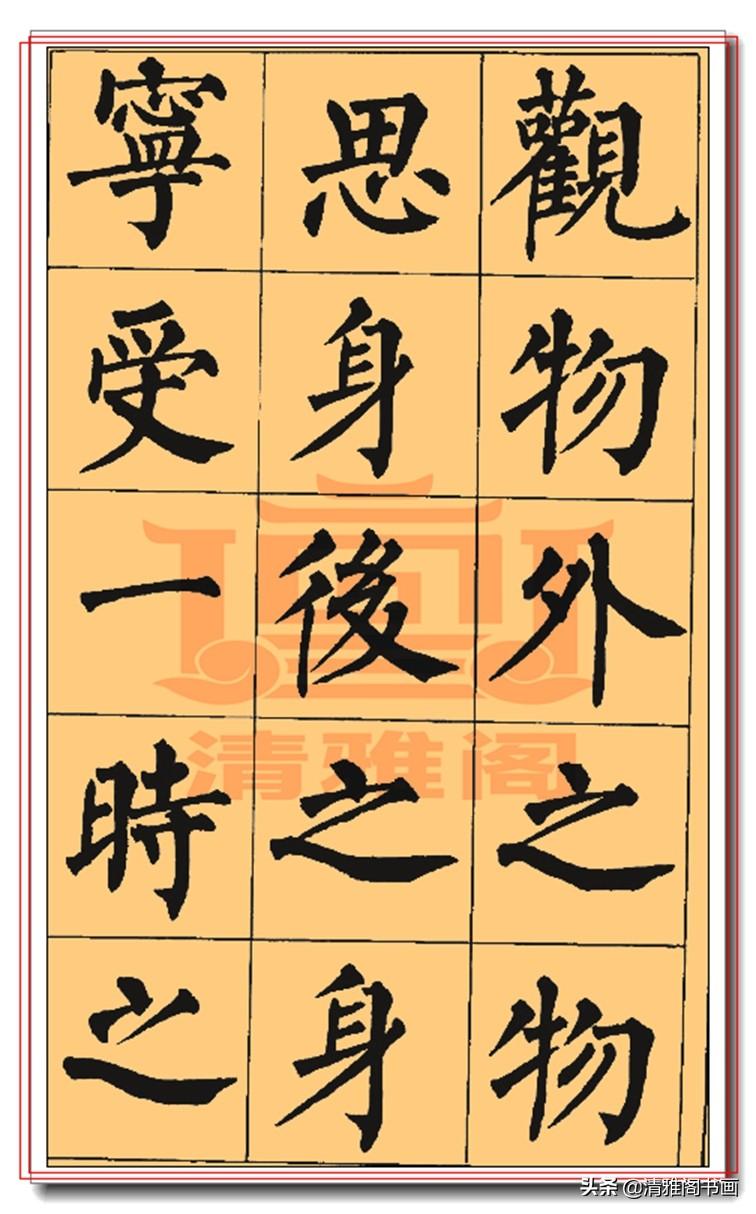 觀物外之物
思身後之身
寧受一時之
清雅阁
头条 @清雅阁书画